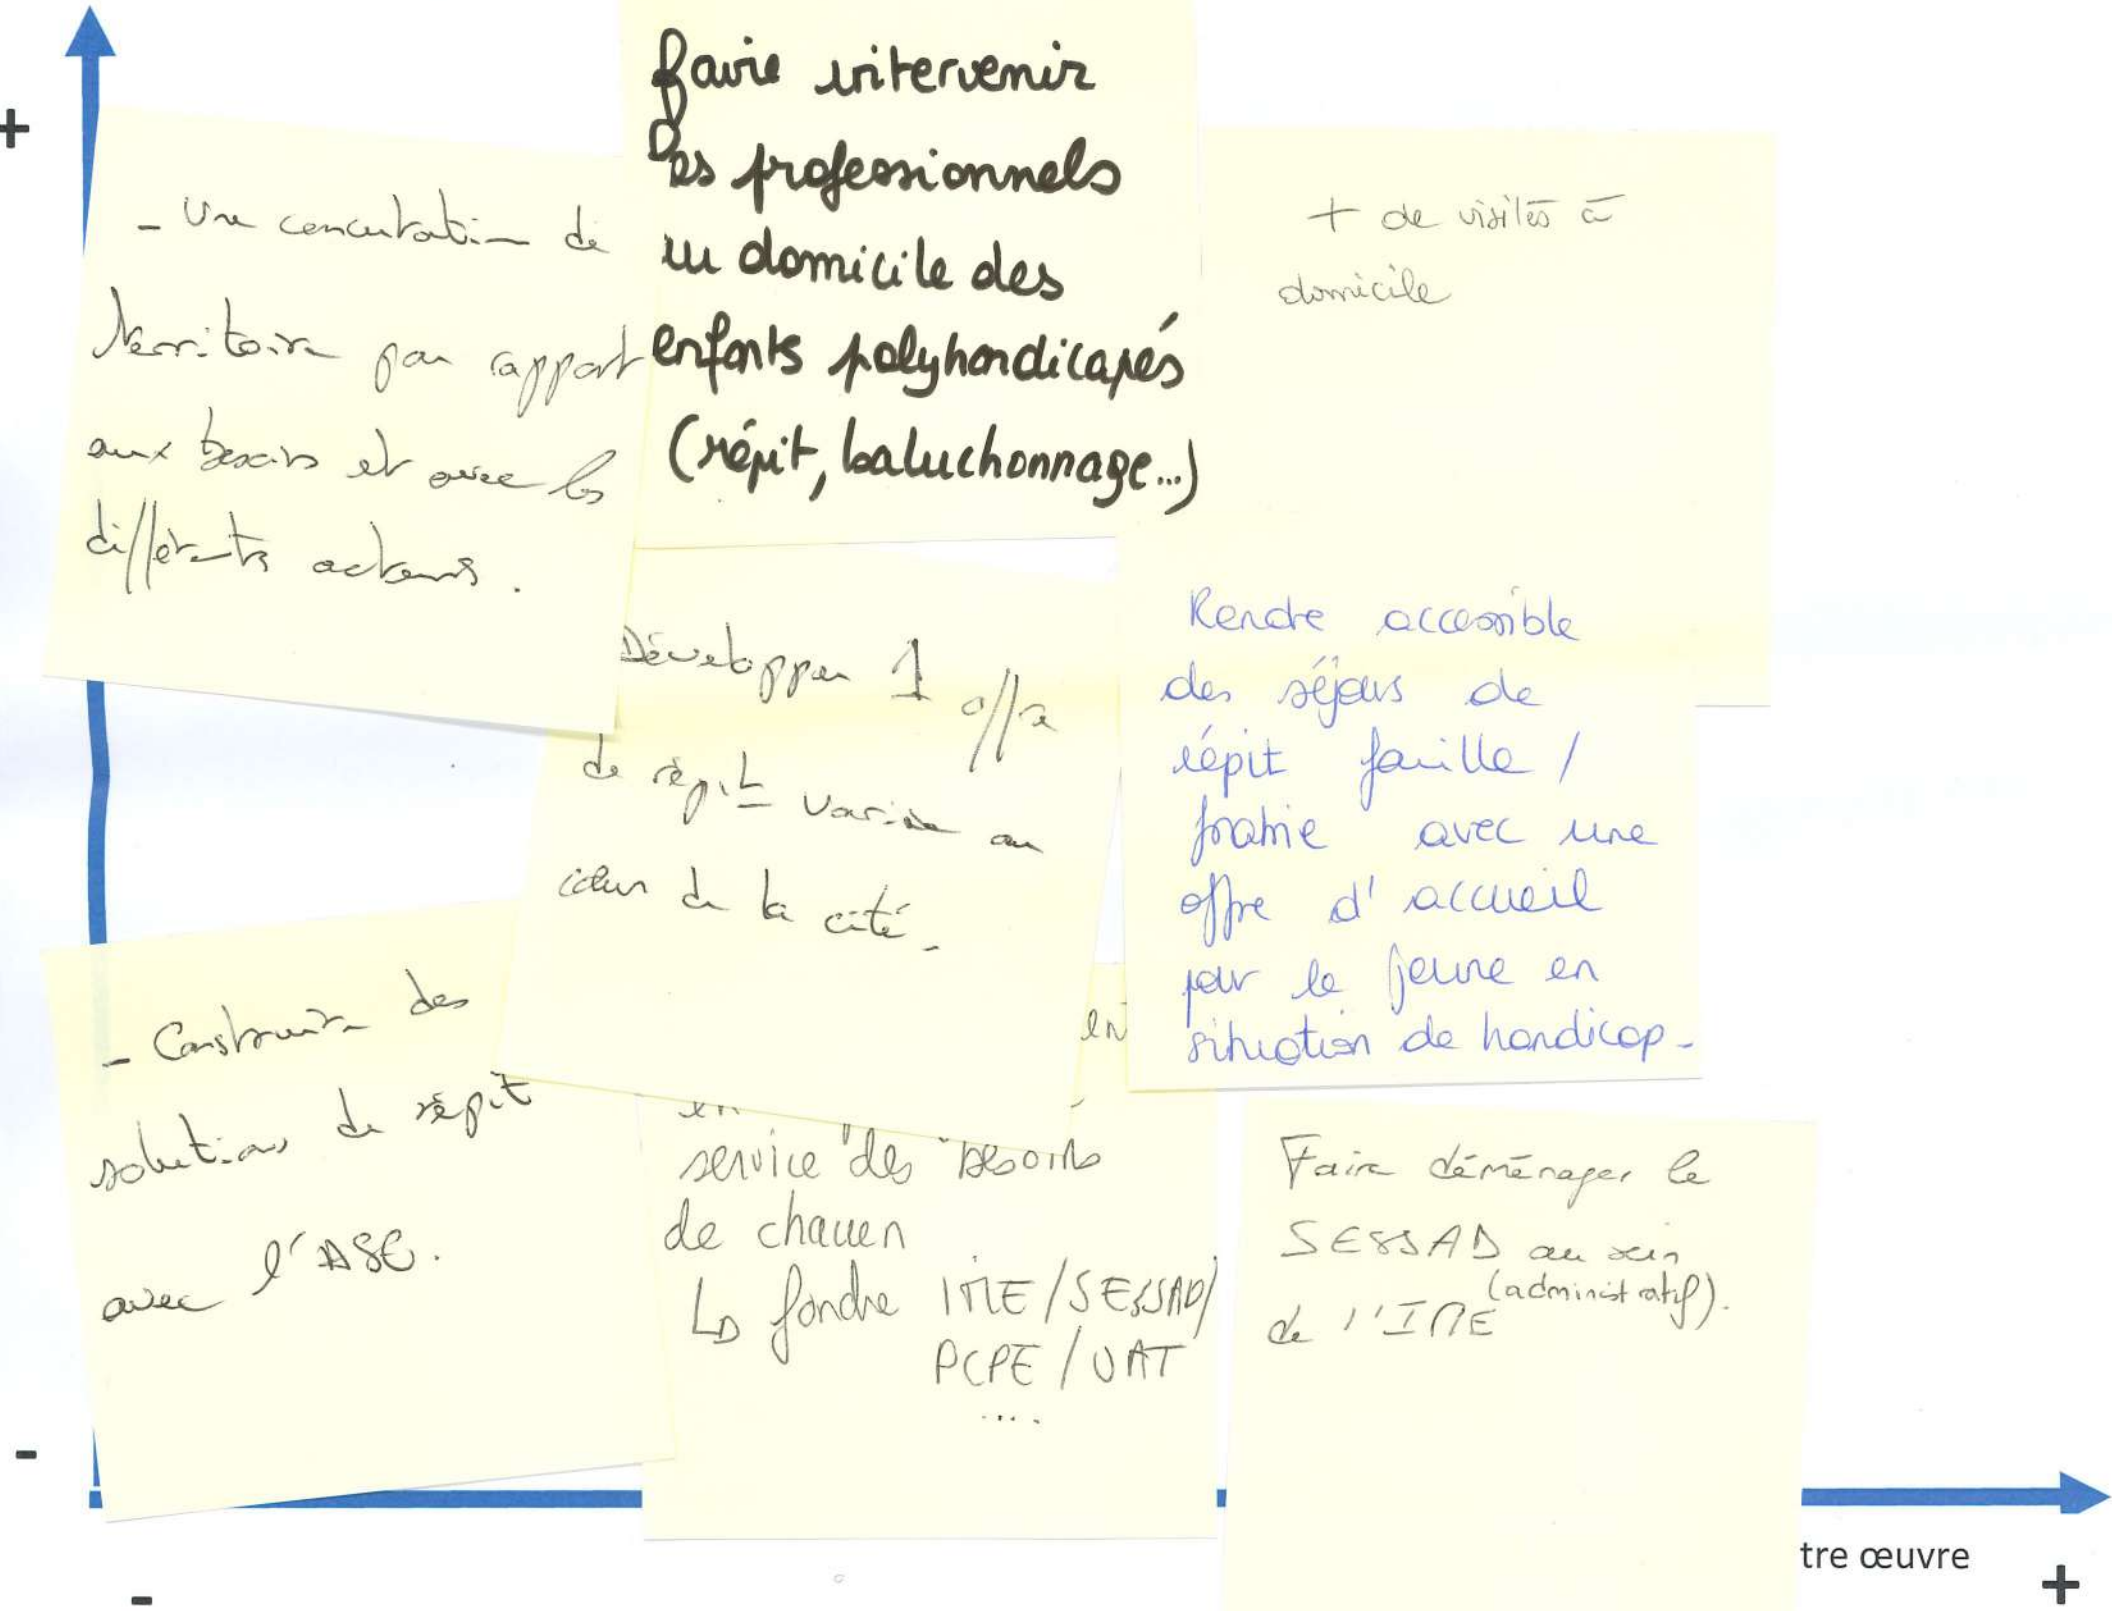 +
- Une concertation de
territoire par rapport
aux besoins et avec les
différents acteurs.
faire intervenir
Des professionnels
au domicile des
enfants polyhandicapés
(répit, baluchonnage...)
+ de visites à
domicile
Développer 1 offre
de répit variée au
cœur de la cité.
Rendre accessible
des séjours de
répit famille /
fratrie avec une
offre d'accueil
pour le jeune en
situation de handicap.
- Construire des
solutions de répit
avec l'ASE.
en
service des besoins
de chacun
↳ fondre IME/SESSAD/
PCPE/UAT
....
Faire déménager le
SESSAD au sein
de l'IME (administratif).
-
tre œuvre
-
+